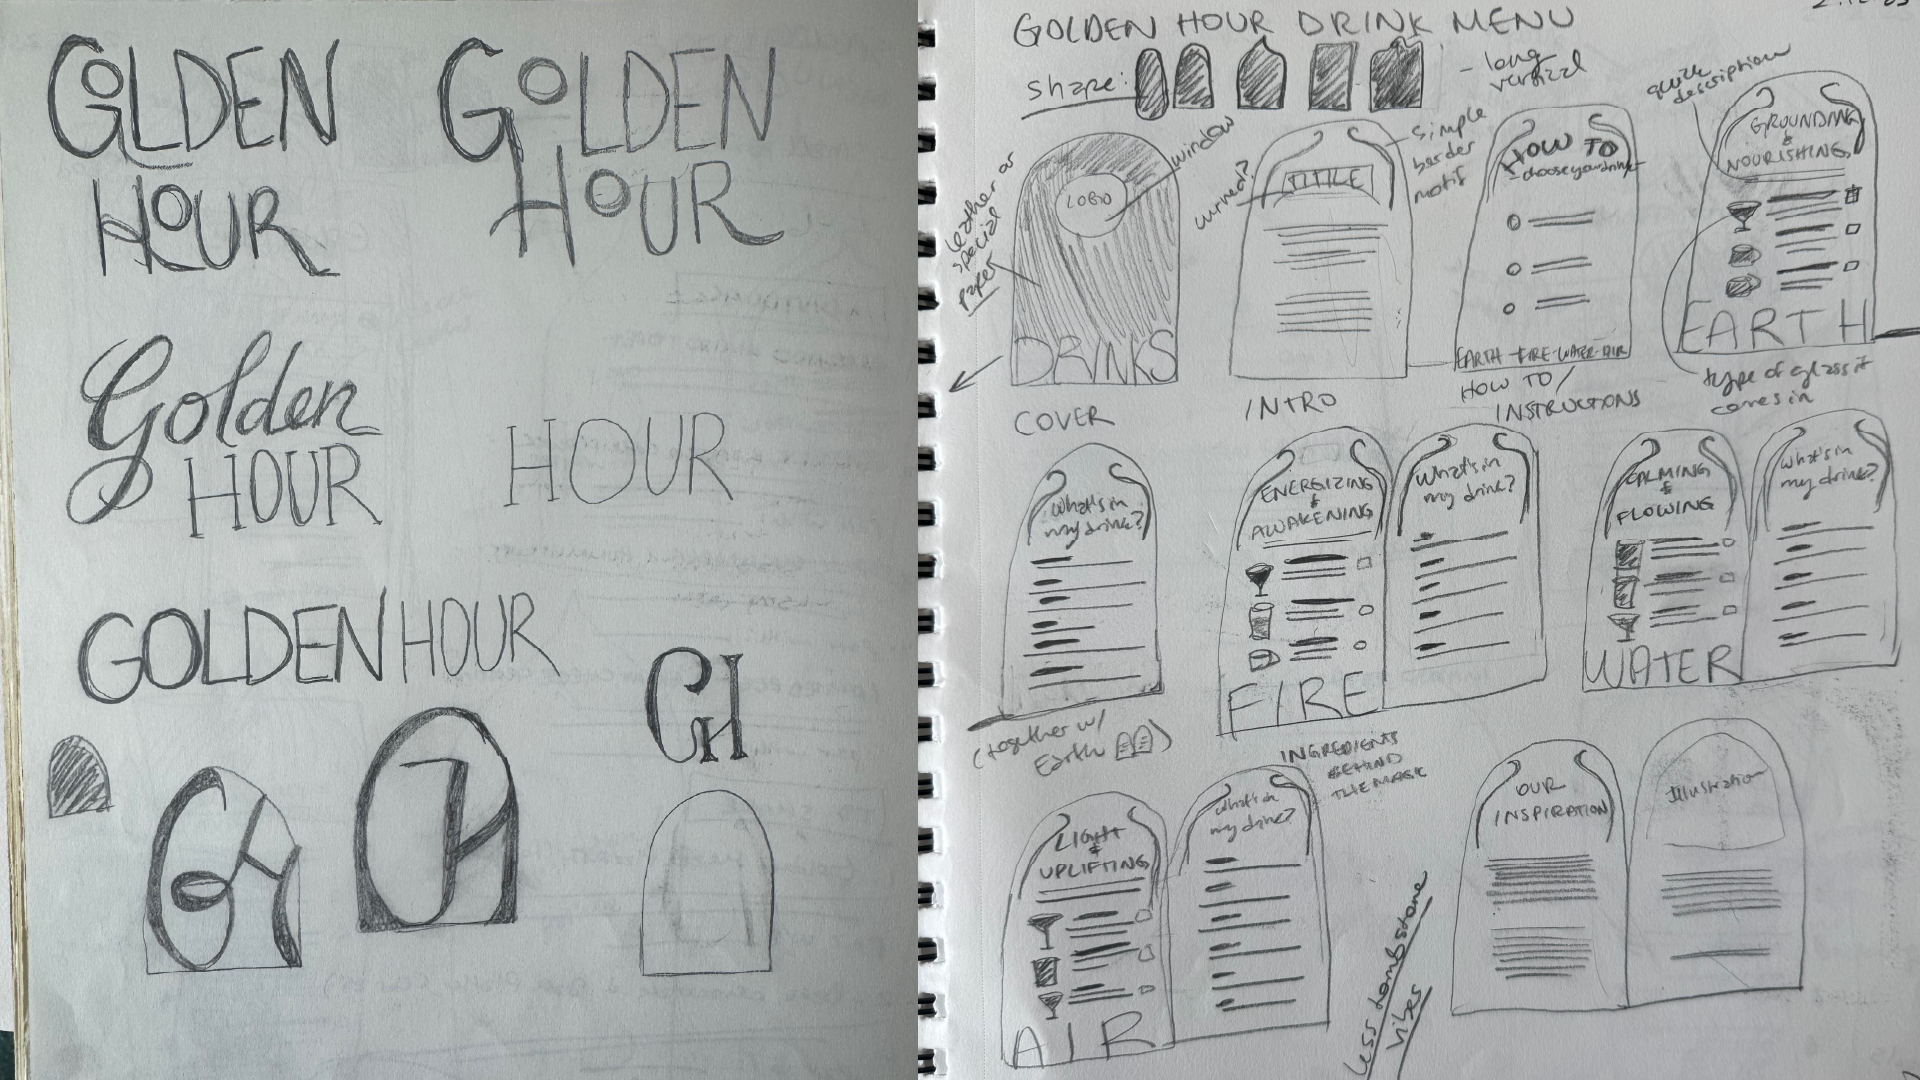 GOLDEN
HOUR
GOLDEN
HOUR
Golden
HOUR
HOUR
GOLDEN HOUR
GH
GH
GH
GOLDEN HOUR DRINK MENU
shape:
- long
vertical
quick
description
leather or
special
paper
window
LOGO
DRINKS
COVER
curved?
TITLE
simple
border
motif
INTRO
HOW TO
- choose your drink -
EARTH-FIRE-WATER-AIR
HOW TO/
INSTRUCTIONS
GROUNDING
&
NOURISHING
EARTH
type of glass it
comes in
What's in
my drink?
(together w/
Earth
)
ENERGIZING
&
AWAKENING
FIRE
What's in
my drink?
INGREDIENTS
BEHIND
THE MASK
CALMING
&
FLOWING
WATER
What's in
my drink?
LIGHT
&
UPLIFTING
AIR
What's in
my drink?
less tombstone
vibes
OUR
INSPIRATION
Illustration